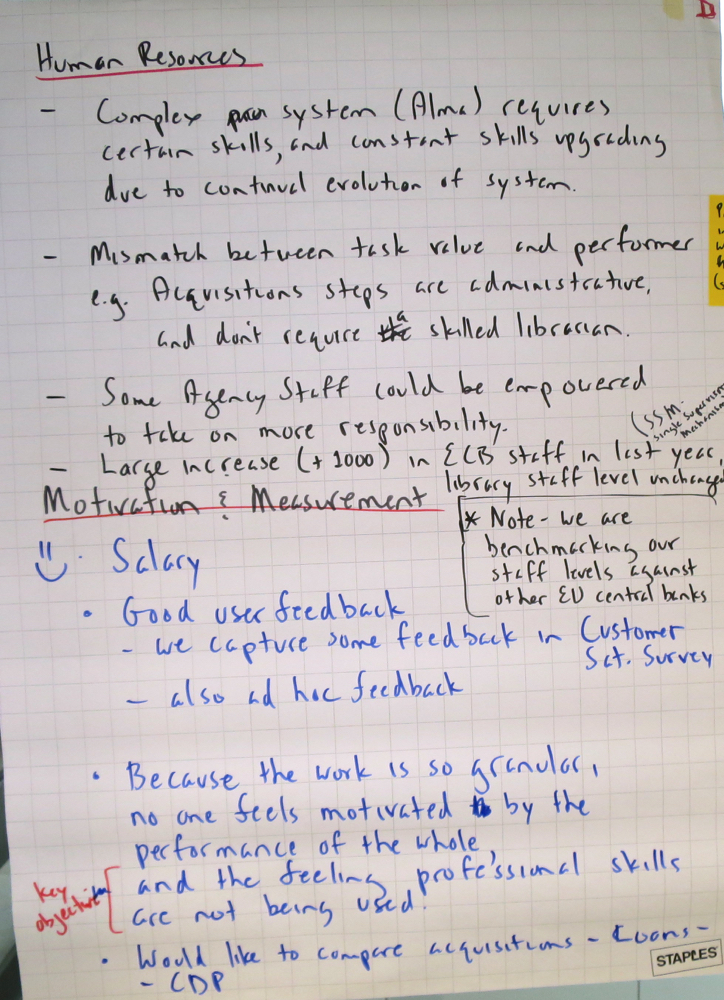 D
Human Resources
- Complex system (Alma) requires
certain skills, and constant skills upgrading
due to continual evolution of system.
- Mismatch between task value and performer
e.g. Acquisitions steps are administrative,
and don't require a skilled librarian.
- Some Agency Staff could be empowered
to take on more responsibility.
(SSM-
single supervisory
mechanism
- Large increase (+1000) in ECB staff in last year,
library staff level unchanged
Motivation & Measurement
* Note - we are
benchmarking our
staff levels against
other EU central banks
• Salary
• Good user feedback
- we capture some feedback in Customer
Sat. Survey
- also ad hoc feedback
• Because the work is so granular,
no one feels motivated by the
performance of the whole,
and the feeling professional skills
are not being used.
key
objective
• Would like to compare acquisitions - Loans -
- CDP
STAPLES